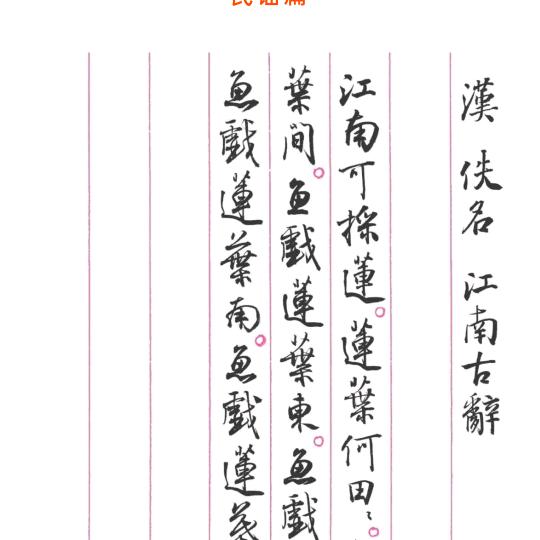 漢 佚名 江南古辭
江南可採蓮。蓮葉何田〻。
葉間。魚戲蓮葉東。魚戲
魚戲蓮葉南。魚戲蓮